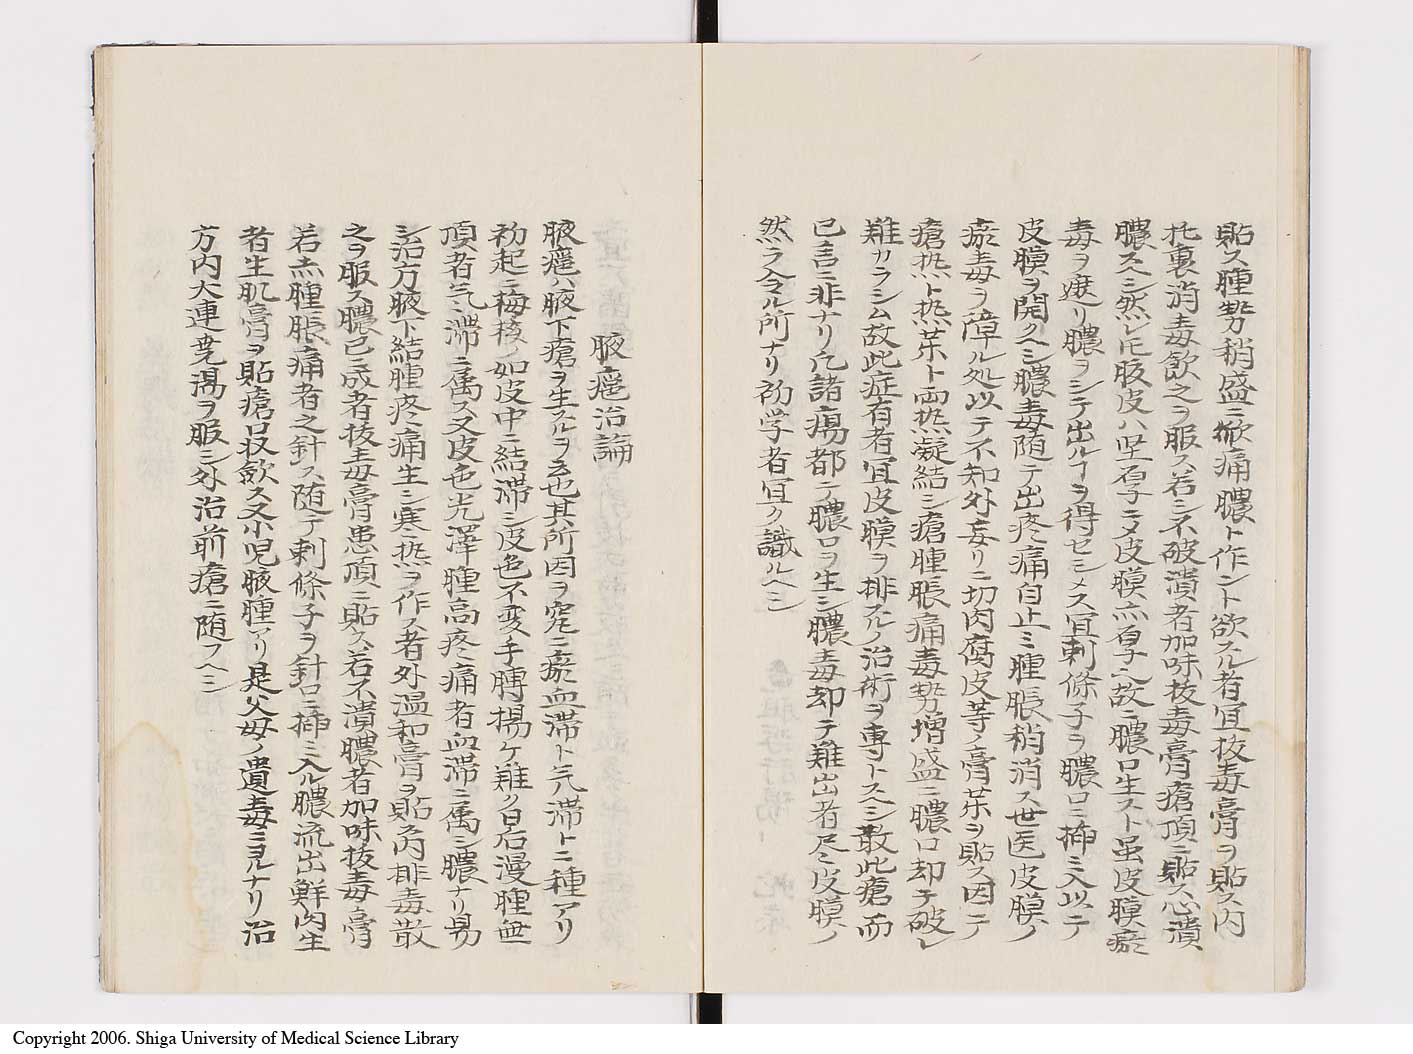 貼ス腫勢稍盛ニ㿉痛膿ト作ント欲スル者宜抜毒膏ヲ貼ス内
托裏消毒飲之ヲ服ス若シ不破潰者加味抜毒膏瘡頂ニ貼ス必潰
膿スヘシ然レ𪜈肢皮ハ堅厚ニメ皮膜亦厚ヘ故ニ膿口生スト虽皮膜瘀
毒ヲ遮リ膿ヲシテ出ルヿヲ得セシメス宜刺條子ヲ膿口ニ挿ミ入以テ
皮膜ヲ開クヘシ膿毒随テ出疼痛自止ミ腫脹稍消ス世医皮膜ノ
瘀毒ヲ障ル処以テ不知外妄リニ切肉腐皮等ノ膏薬ヲ貼ス因テ
瘡熱ト熱薬ト両熱凝結シ瘡腫脹痛毒勢増盛ニ膿口却テ破レ
難カラシム故此症有者宜皮膜ヲ排スルノ治術ヲ専トスヘシ敢此瘡而
已言ニ非ナリ凡諸瘍都テ膿口ヲ生シ膿毒却テ難出者尽ミ皮膜ノ
然ラ令ル所ナリ初学者宜ク識ルヘシ
腋癰治論
腋癰ハ腋下瘡ヲ生スルヲ云也其所因ヲ究ニ瘀血滞ト气滞ト二種アリ
初起ニ梅核ノ如皮中ニ結滞シ皮色不変手膊揚ケ難ク日后漫腫無
頂者气ニ滞ニ属ス又皮色光澤腫高疼痛者血滞ニ属シ膿ナリ易
シ治方腋下結腫疼痛生シ寒熱ヲ作ス者外温和膏ヲ貼内排毒散
之ヲ服ス膿已ニ成者抜毒膏患頂ニ貼ス若不潰膿者加味抜毒膏
若亦腫脹痛者之針ス随テ刺條子ヲ針口ニ挿ミ入ル膿流出鮮肉生
者生肌膏ヲ貼瘡口収斂ス又小児腋腫アリ是父母ノ遺毒ミヨルナリ治
方内大連翹湯ヲ服シ外治前瘡ニ随フヘシ
Copyright 2006. Shiga University of Medical Science Library